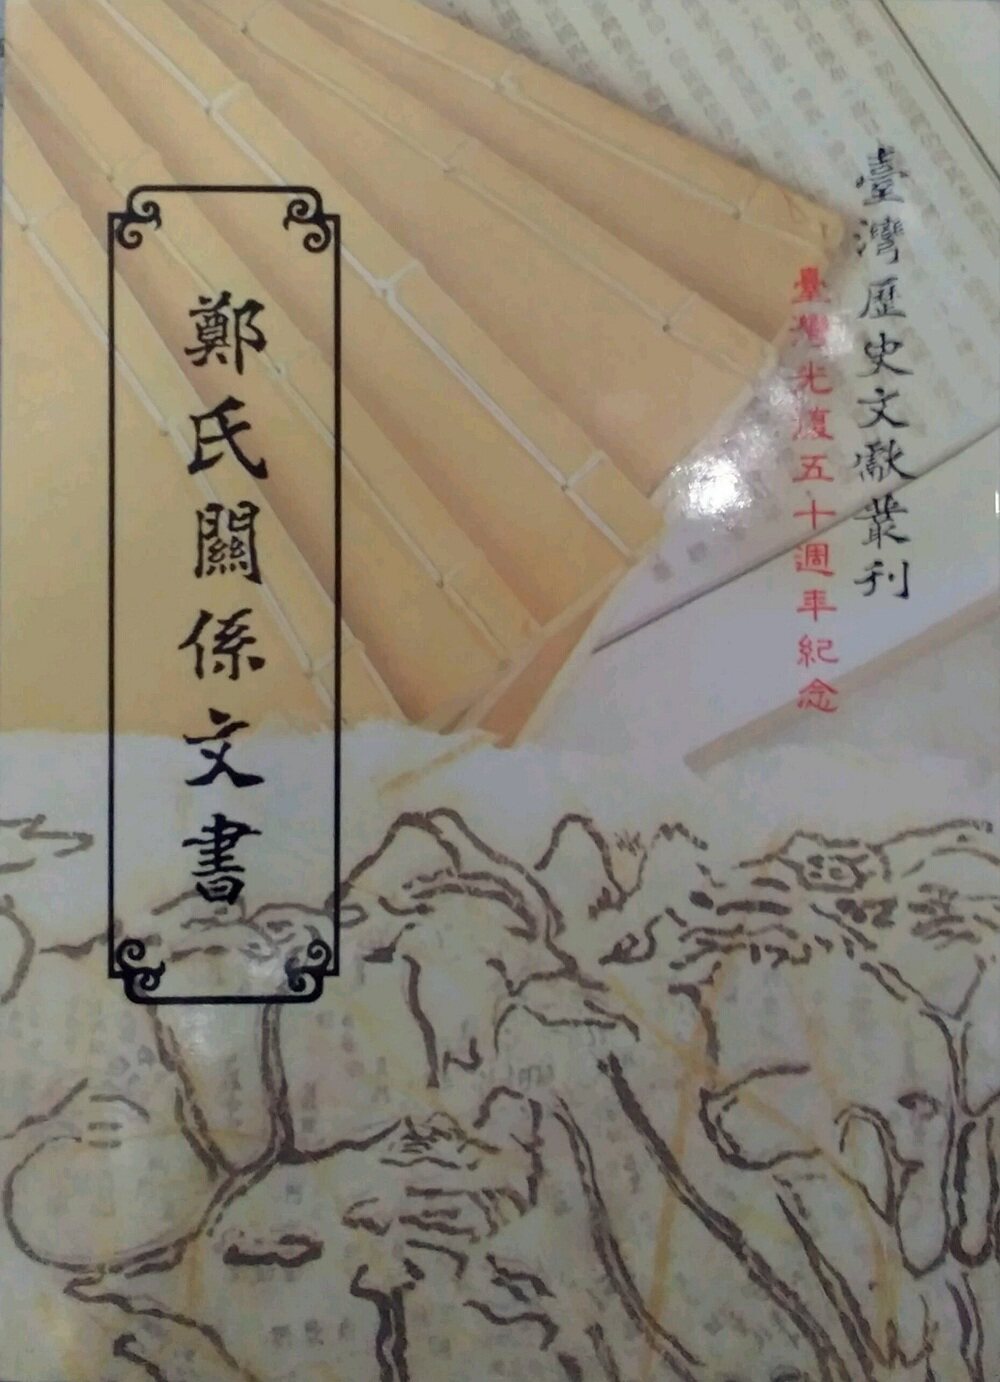 臺灣歷史文獻叢刊
臺灣光復五十週年紀念
鄭氏關係文書